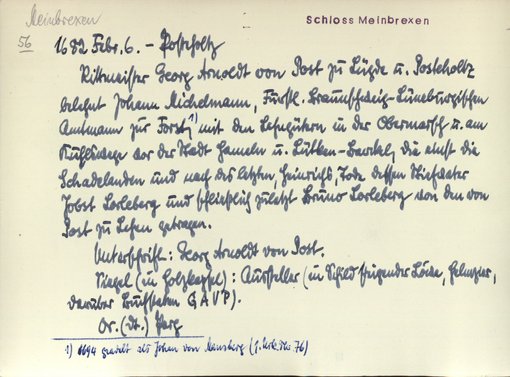 Meinbrexen
Schloss Meinbrexen
56
1682 Febr. 6. - Posteholtz
Rittmeister Georg Arnoldt von Post zu Lügde u. Posteholtz
belehnt Johann Michelmann, Fürstl. Braunschweig-Lüneburgischen
Amtmann zur Forst, 1) mit den Lehngütern in der Obermarsch u. am
Kuhlswege vor der Stadt Hameln u. Lütken-Berkel, die einst die
Schadelanden und nach des letzten, Heinrichs, Tode dessen Stiefvater
Jobst Lorleberg und schließlich zuletzt Bruno Lorleberg von den von
Post zu Lehen getragen.
Unterschrift: Georg Arnoldt von Post.
Siegel (in Holzkapsel): Aussteller (im Schild steigender Löwe, Helmzier,
darüber Buchstaben G A V P).
Or. (dt.) Perg
1) 1694 geadelt als Johan von (s. Urk. Nr. 76)